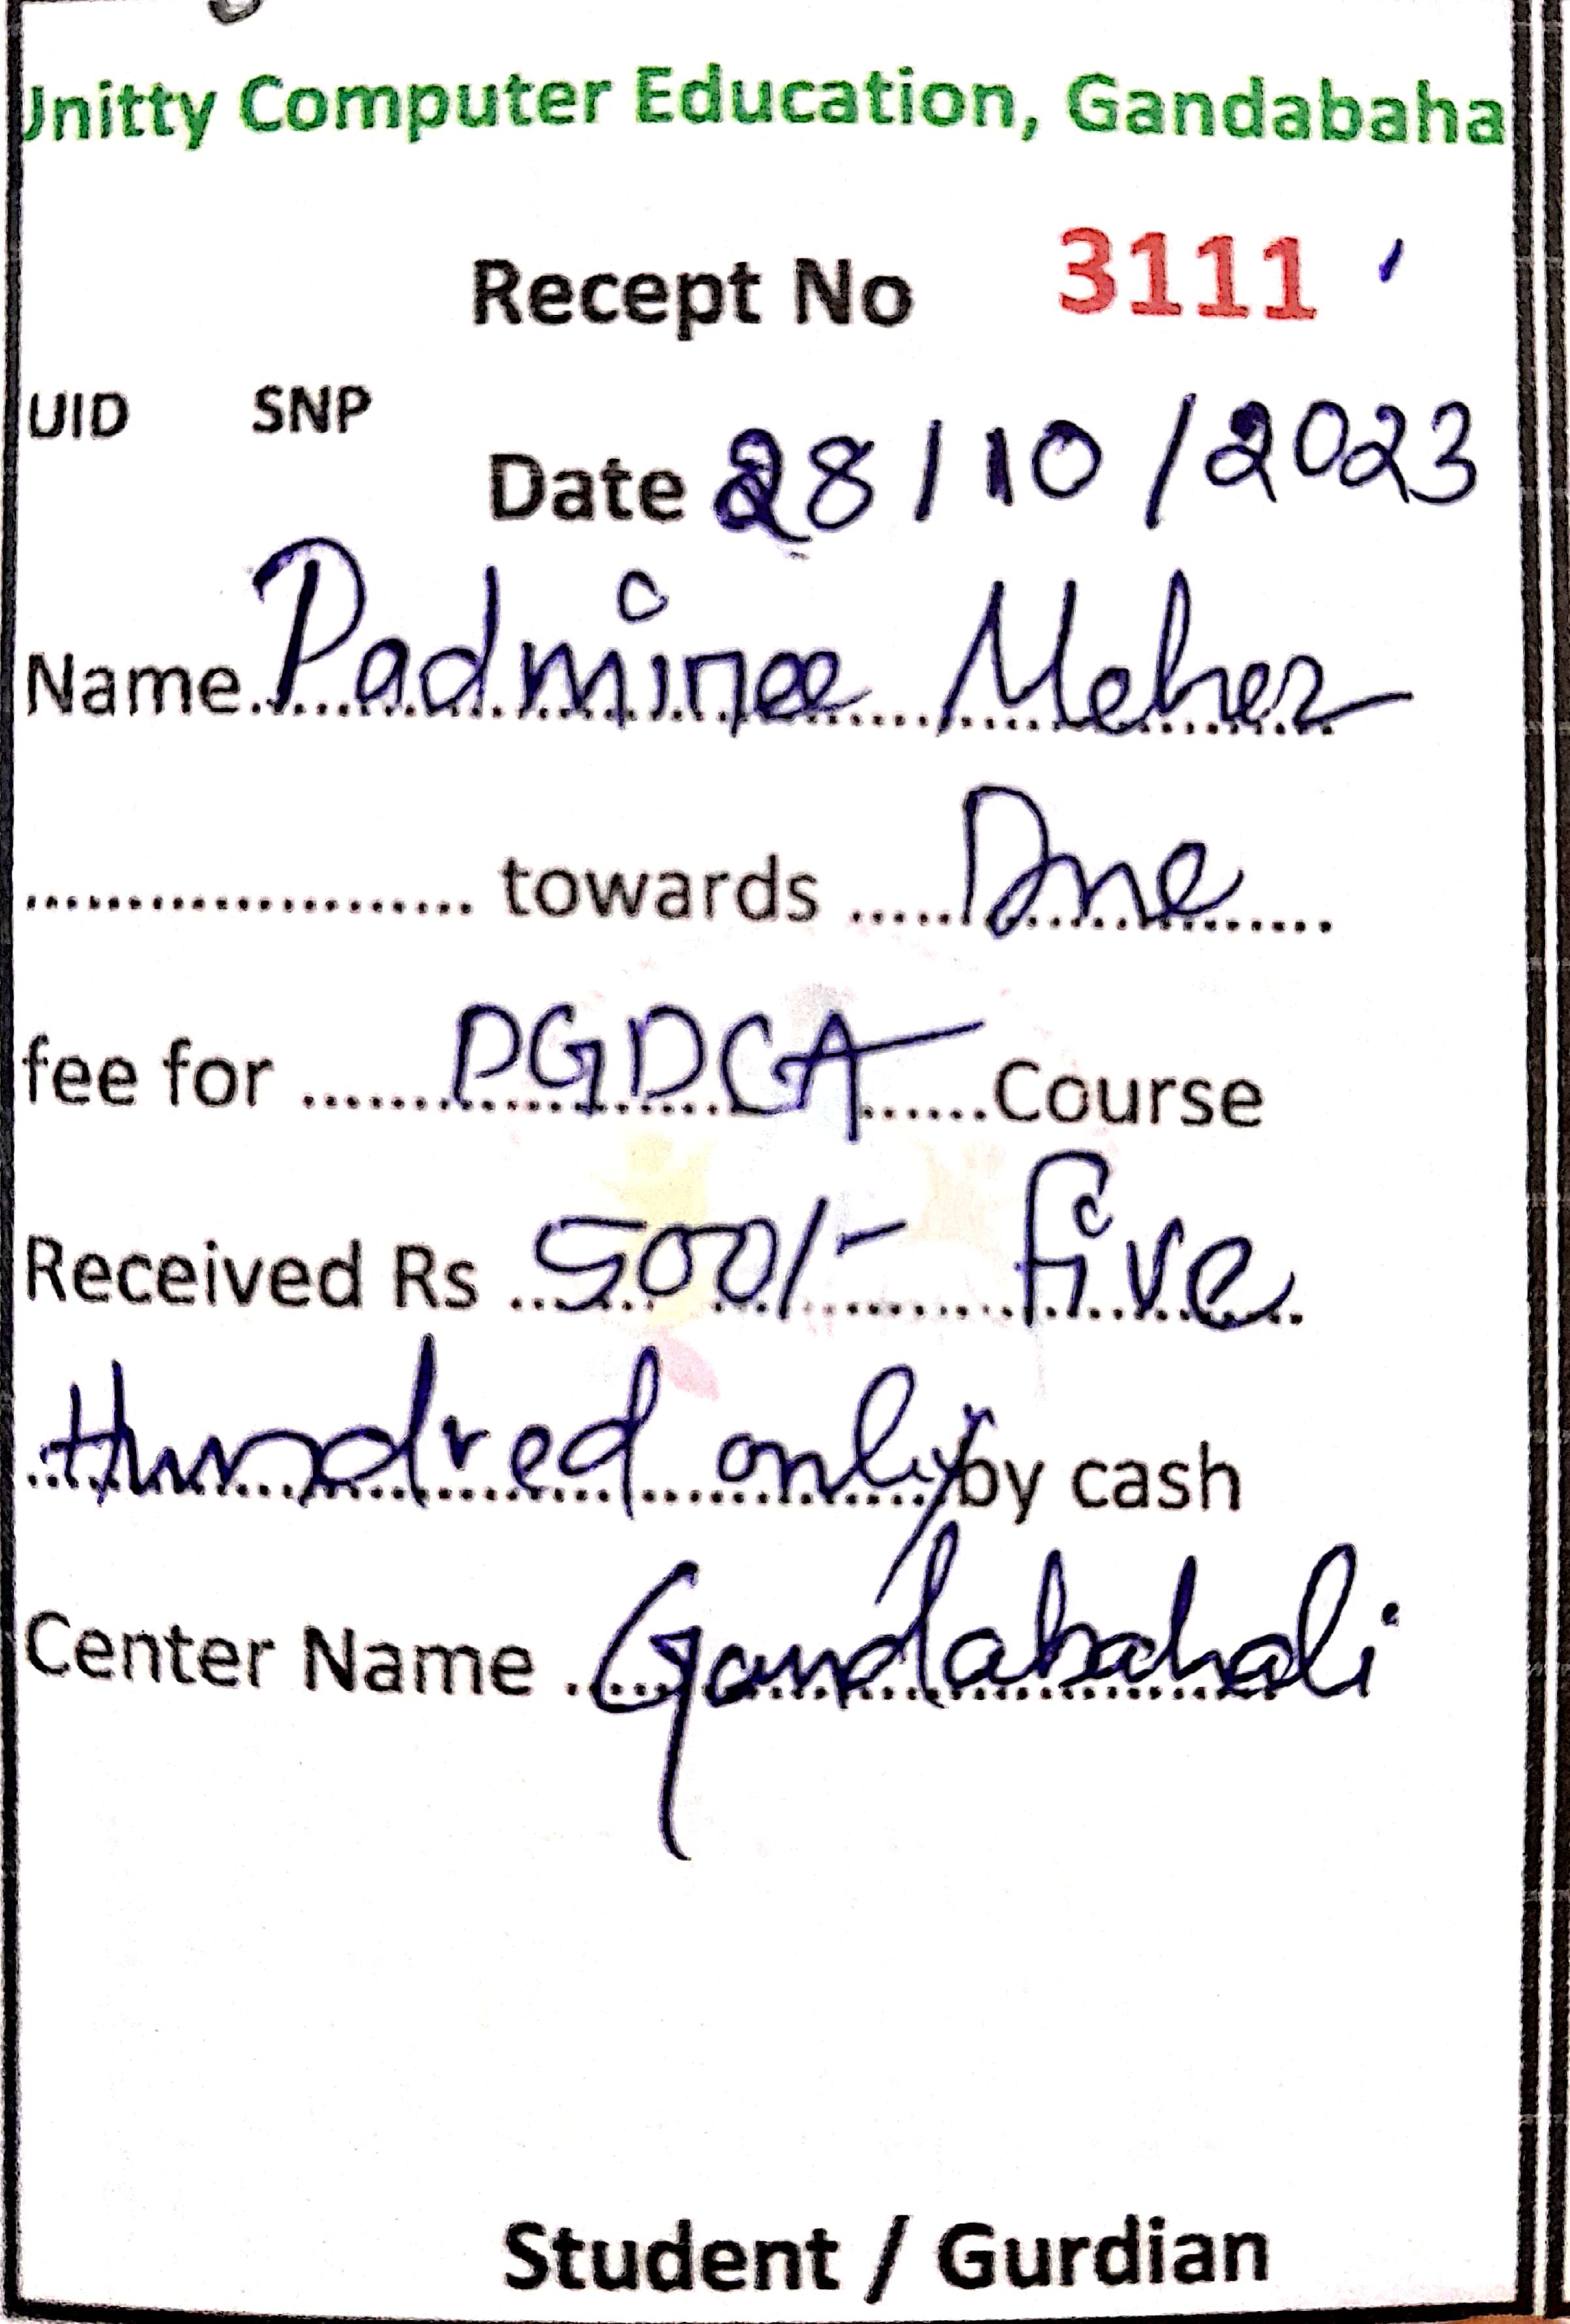 Unitty Computer Education, Gandabaha
Recept No 3111
UID SNP
Date 28/10/2023
Name Padminee Meher
towards Due
fee for PGDCA Course
Received Rs 500/- five
Hundred only by cash
Center Name Gandabahali
Student / Gurdian